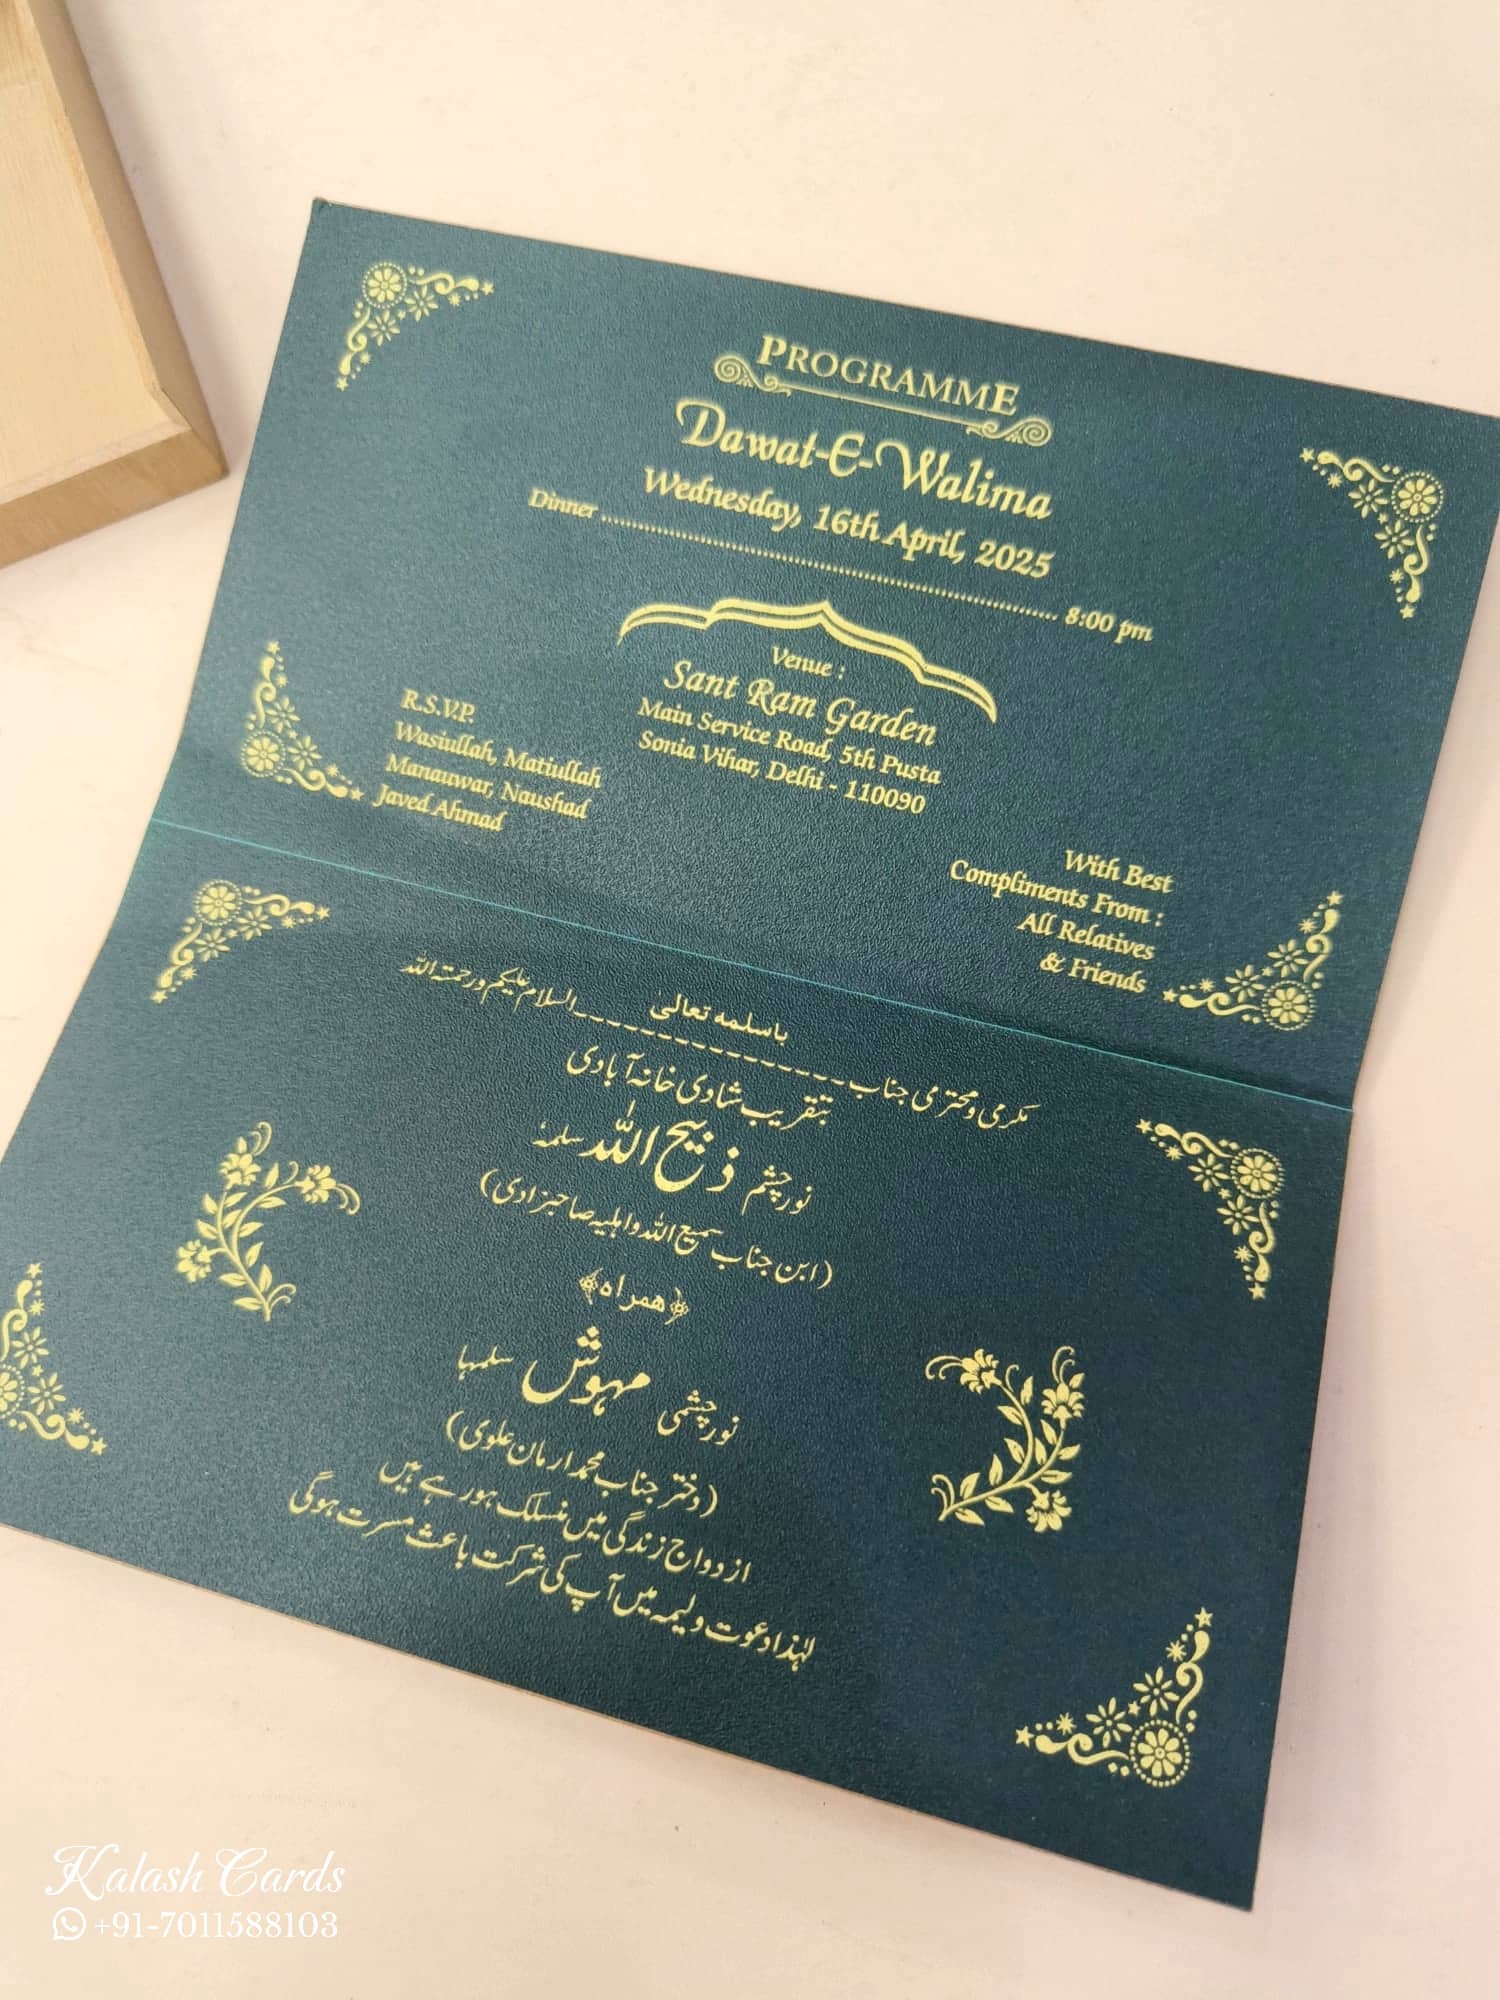 PROGRAMME
Dawat-E-Walima
Wednesday, 16th April, 2025
Dinner .......................................................... 8:00 pm
Venue :
Sant Ram Garden
Main Service Road, 5th Pusta
Sonia Vihar, Delhi - 110090
R.S.V.P.
Wasiullah, Matiullah
Manauwar, Naushad
Javed Ahmad
With Best
Compliments From :
All Relatives
& Friends
باسلمه تعالیٰ
مکرمی ومحترمی جناب_______________السلام علیکم ورحمتہ اللہ
بتقریب شادی خانہ آبادی
نورچشم ذبیح اللہ سلمہٗ
(ابن جناب سمیع اللہ واہلیہ صاحبزادی)
﴿همراه﴾
نورچشمی مہوش سلمہا
(دختر جناب محمد ارمان علوی)
ازدواج زندگی میں منسلک ہورہے ہیں
لہٰذا دعوت ولیمہ میں آپ کی شرکت باعث مسرت ہوگی
Kalash Cards
+91-7011588103